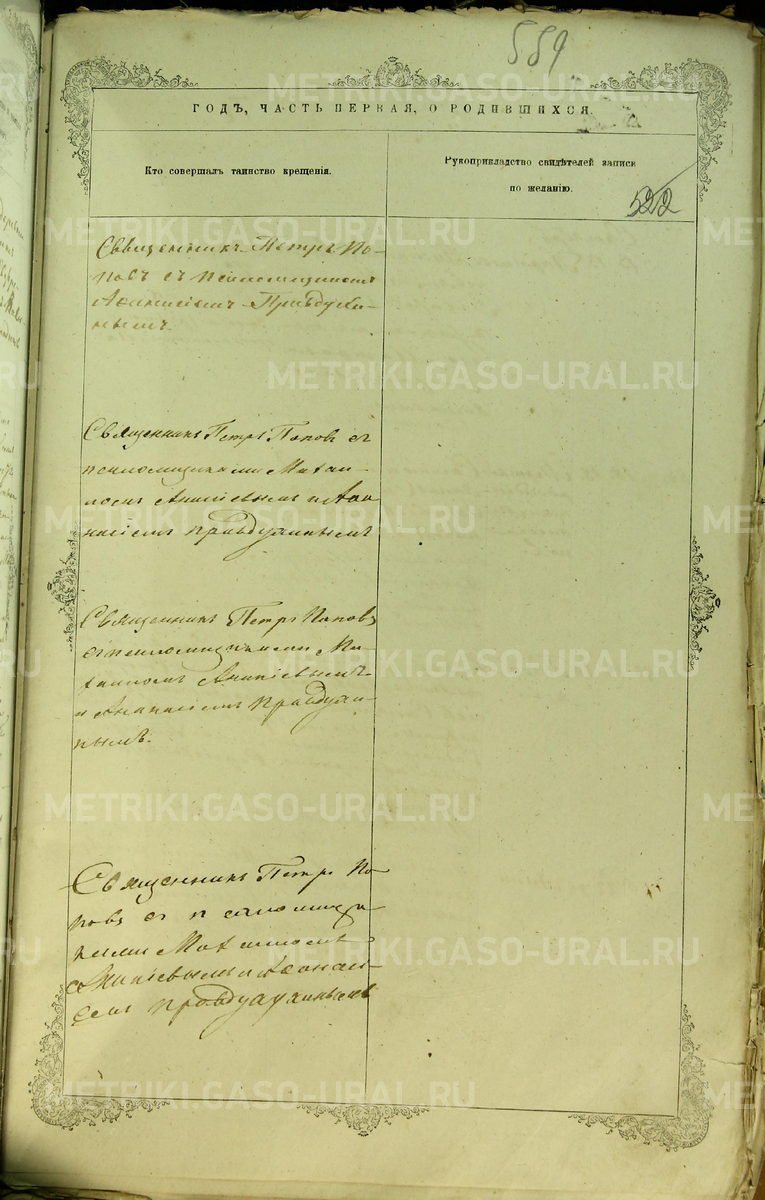 589
ГОДЪ, ЧАСТЬ ПЕРВАЯ, О РОДИВШИХСЯ.
Кто совершалъ таинство крещенія.
Рукоприкладство свидѣтелей записи
по желанію.
522
Священникъ Петръ По-
повъ съ псаломщикомъ
Аѳанасіемъ Правдухи-
нымъ.
Священникъ Петръ Поповъ съ
псаломщиками Михаи-
ломъ Ананіевымъ и Аѳа-
насіемъ Правдухинымъ
Священникъ Петръ Поповъ
съ псаломщиками Ми-
хаиломъ Ананіевымъ
и Аѳанасіемъ Правдухи-
нымъ.
Священникъ Петръ По-
повъ съ псаломщи-
ками Михаиломъ
Ананіевымъ и Аѳанасі-
емъ Правдухинымъ
METRIKI.GASO-URAL.RU